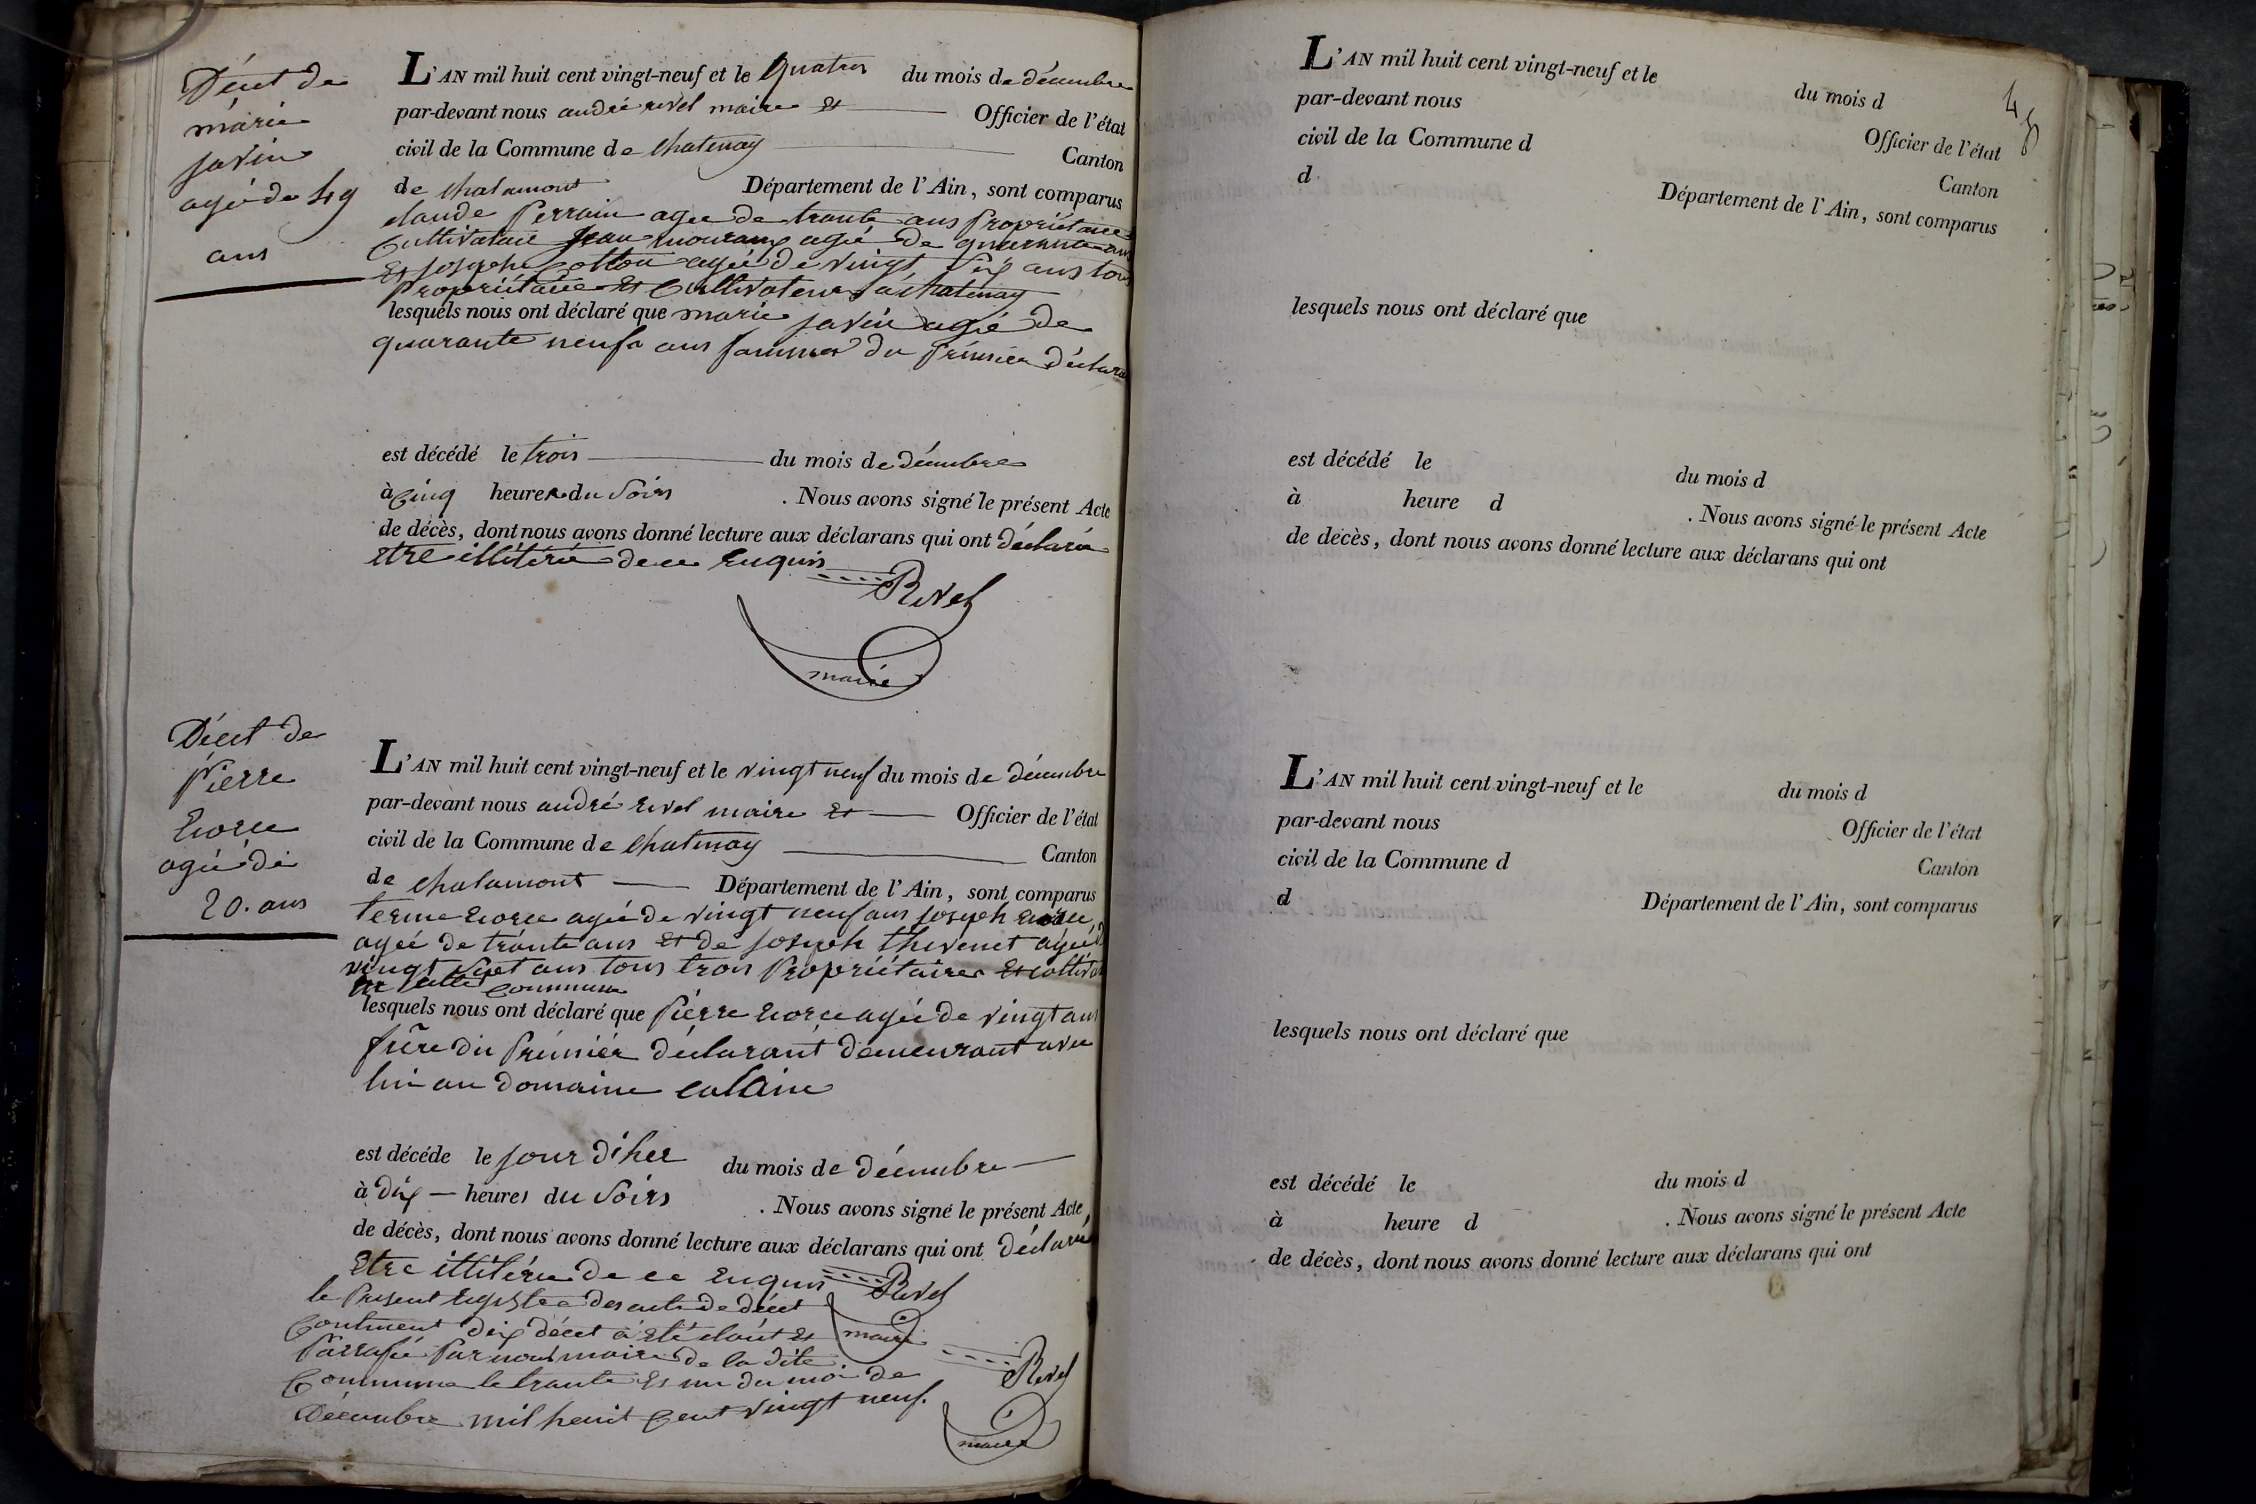 Décet de
marie
savin
agée de 49
ans
L'AN mil huit cent vingt-neuf et le quatres du mois de décembre
par-devant nous andré revel maire et Officier de l'état
civil de la Commune de chatenay Canton
de chalamont Département de l'Ain, sont comparus
claude Perrain agee de trante ans Propriétaire
Cultivataire jean agée de quarante ans
Et joseph agée de vingt six ans tous
Propriétaire Et Cultivateur a chatenay
lesquels nous ont déclaré que marie savin agée de
quarante neufs ans fammes du Prémier déclara
est décédé le trois du mois de décembres
à Cinq heures du Soirs . Nous avons signé le présent Acte
de décès, dont nous avons donné lecture aux déclarans qui ont déclaré
etre illitéré de ce Enquis
Revel
maire
Décet de
Pierre
agée de
20. ans
L'AN mil huit cent vingt-neuf et le vingt neuf du mois de décembre
par-devant nous andré revel maire Et Officier de l'état
civil de la Commune de chatenay Canton
de chalamont Département de l'Ain, sont comparus
agée de vingt neuf ans joseph
ageé de trante ans et de joseph thevenet agée d
vingt sept ans tous trois Propriétaires Et cultivat
commune
lesquels nous ont déclaré que Piérre agée de vingt ans
frère du Prémiér déclarant demeurant avec
lui au domaine
est décéde le jour d'hier du mois de décembre
à dix heures du Soirs . Nous avons signé le présent Acte
de décès, dont nous avons donné lecture aux déclarans qui ont déclaré
Etre illitéré de ce Enquis Revel
le Present registre des acte de décet
Contment dix décet a été cloût et maire
Parrafée Par nous maire de la dite
Commune le trante Et un du moi de Revel
Décembre mil heuit Cent vingt neuf. maire
48
L'AN mil huit cent vingt-neuf et le du mois d
par-devant nous Officier de l'état
civil de la Commune d Canton
d Département de l'Ain, sont comparus
lesquels nous ont déclaré que
est décédé le du mois d
à heure d . Nous avons signé le présent Acte
de décès, dont nous avons donné lecture aux déclarans qui ont
L'AN mil huit cent vingt-neuf et le du mois d
par-devant nous Officier de l'état
civil de la Commune d Canton
d Département de l'Ain, sont comparus
lesquels nous ont déclaré que
est décédé le du mois d
à heure d . Nous avons signé le présent Acte
de décès, dont nous avons donné lecture aux déclarans qui ont